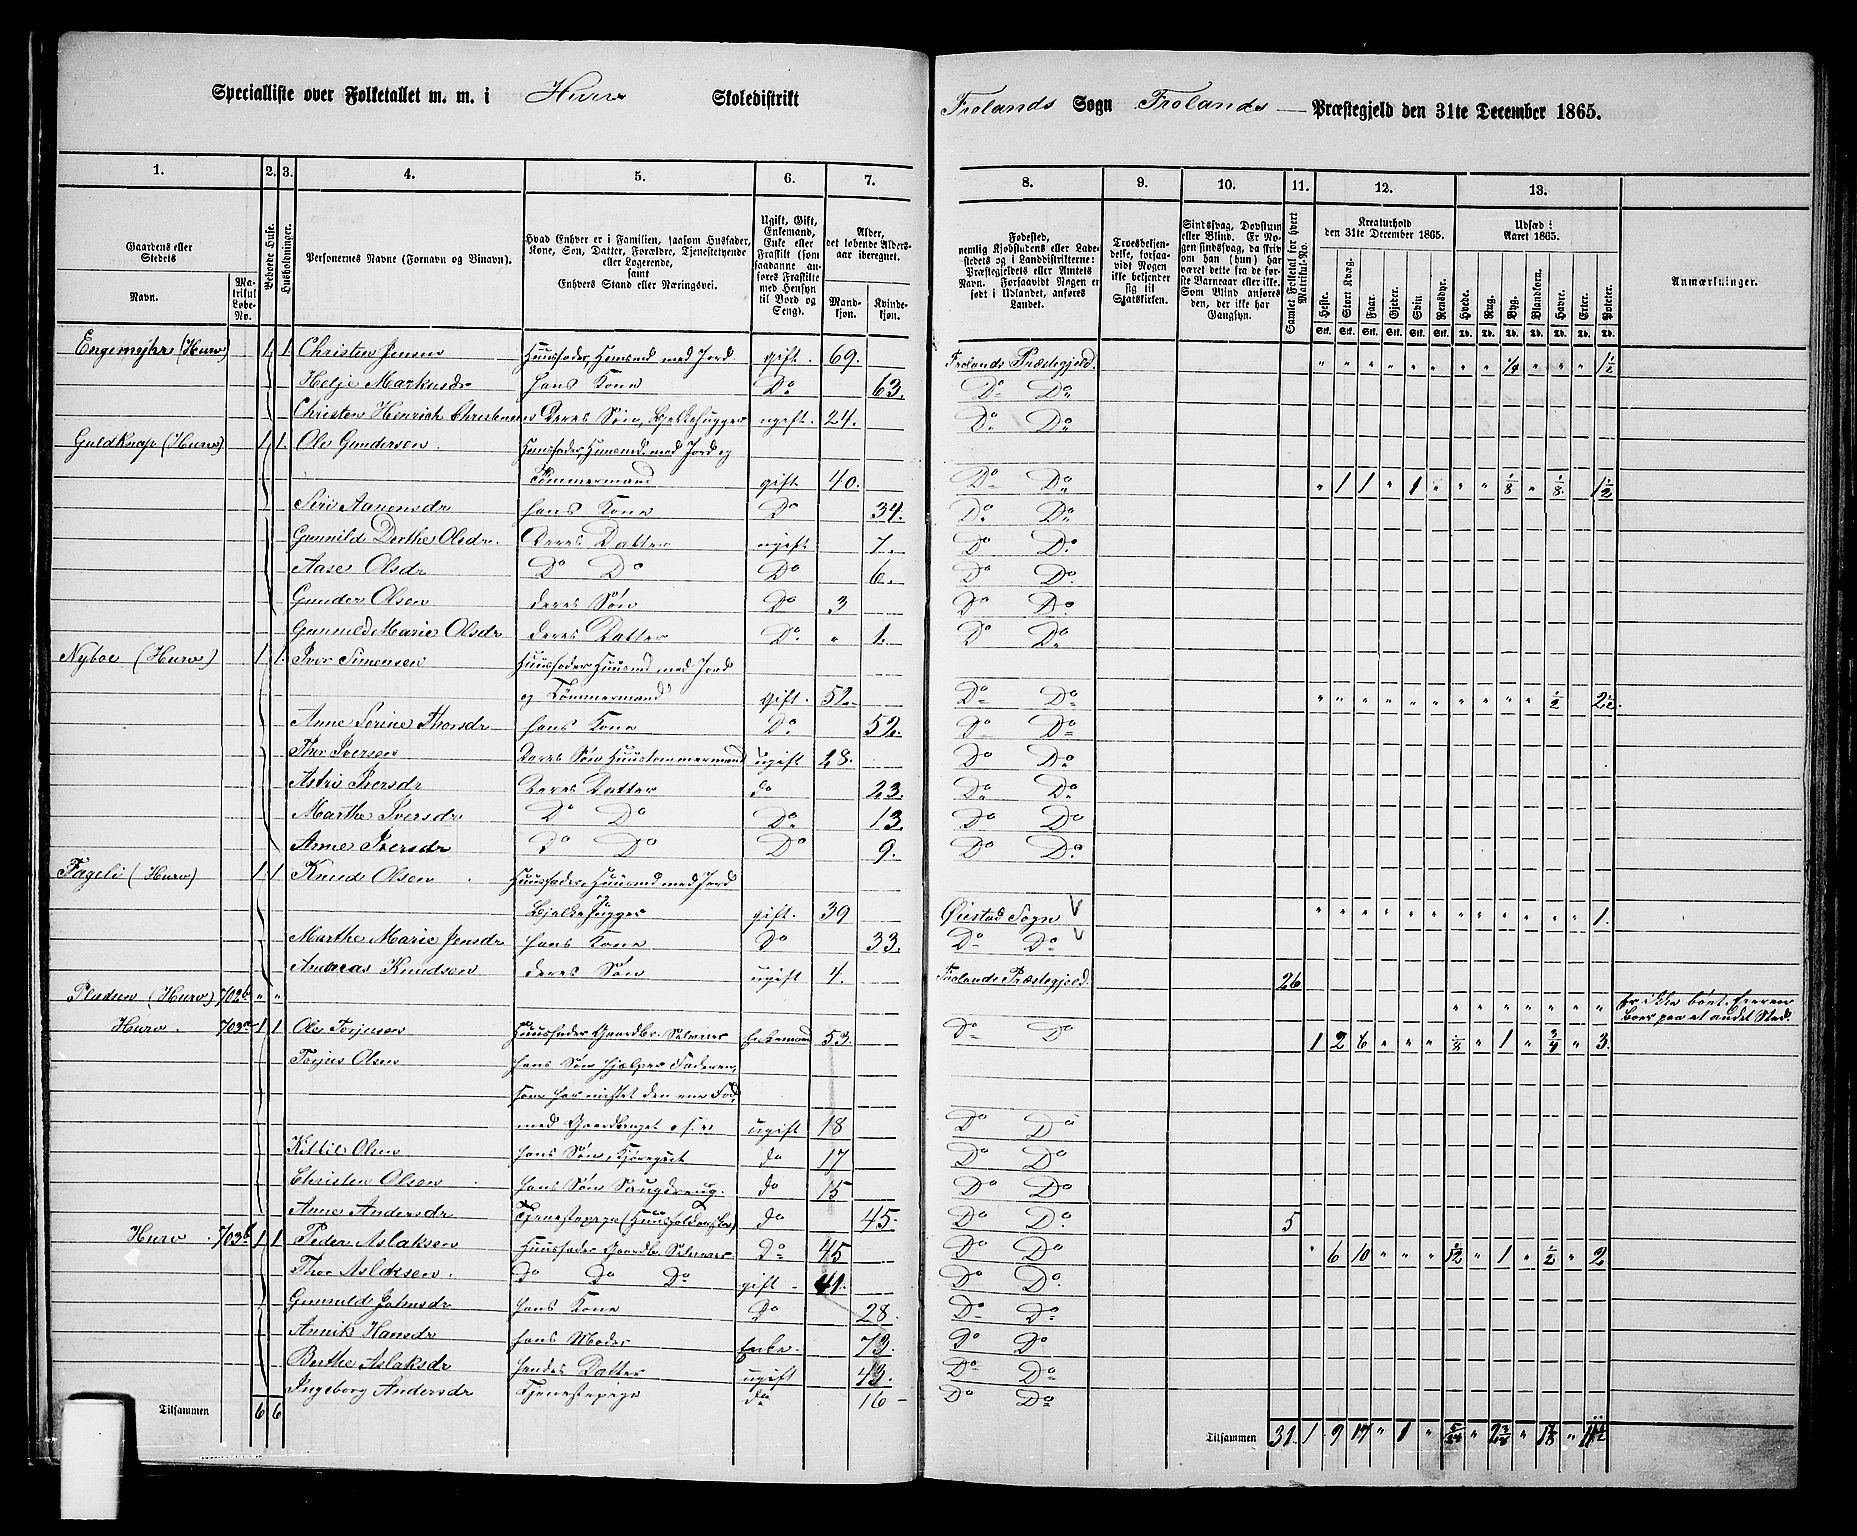 Specialliste over Folketallet m. m. i Hurv Skoledistrikt Frolands Sogn Frolands Præstegjeld den 31te December 1865.
1. 2. 3. 4. 5. 6. 7. 8. 9. 10. 11. 12. 13.
Gaardens eller Stedets Navn. Matrikul Løbe-No. Beboede Huse. Husholdninger. Personernes Navne (Fornavn og Binavn). Hvad Enhver er i Familien, saasom Husfader, Kone, Søn, Datter, Forældre, Tjenestetyende eller Logerende, samt Enhvers Stand eller Næringsvei. Ugift, Gift, Enkemand, Enke eller Fraskilt (som saadanne anføres Fraskilte med Hensyn til Bord og Seng). Alder, det løbende Aldersaar iberegnet. Mandkjøn. Kvindekjøn. Fødested, nemlig Kjøbstadens eller Ladestedets og i Landdistrikterne: Præstegjeldets eller Amtets Navn. Forsaavidt Nogen er født i Udlandet, anføres Landet. Troesbekjendelse, forsaavidt Nogen ikke bekjender sig til Statskirken. Sindssvag, Døvstum eller Blind. Er Nogen sindssvag, da skrives om han (hun) har været dette fra de første Barneaar eller ikke. Som Blind anføres den, der ikke har Gangsyn. Samlet Folketal for hvert Matrikul-No. Kreaturhold den 31te December 1865. Heste. Stort Kvæg. Faar. Gjeder. Svin. Rensdyr. Udsæd i Aaret 1865. Hvede. Rug. Byg. Blandkorn. Havre. Erter. Poteter. Anmærkninger.
Stk. Stk. Stk. Stk. Stk. Stk. Td. Td. Td. Td. Td. Td. Td.
Engemyhr (Hurv) 1 1 Christen Jensen Huusfader, Huusmd med Jord. gift. 69. Frolands Præstegjeld. " " " " " " " " 1/4 " " " 1 1/2
Helje Markusdr hans Kone Do 63. Do Do
Christen Henrich Christensen Deres Søn, Bjelkehugger ugift. 24. Do Do
Guldknap (Hurv) 1 1 Ole Gundersen. Huusfader Huusmd. med Jord og
Tømmermand gift 40. Do Do " 1 1 " 1 " " " 1/8 " 1/8 " 1 1/2
Siri Aanensdr hans Kone Do 34. Do Do
Gunnild Dorthe Olsdr. Deres Datter ugift 7. Do Do
Aase Olsdr Do Do Do 6. Do Do
Gunder Olsen deres Søn Do 3 Do Do
Gunnild Marie Olsdr deres Datter Do " 1. Do Do
Nyboe (Hurv) 1 1 Iver Simensen Huusfader Huusmd med Jord
og Tømmermand gift. 52. Do Do " " " " " " " " " " 1/2 " 2 1/2
Anne Serine Thorsdr hans Kone Do 52. Do Do
Thor Iversen Deres Søn Huustømmermand ugift 28. Do Do
Astri Iversdr Deres Datter do 23. Do Do
Marthe Iversdr Do Do Do 13. Do Do
Anne Iversdr Do Do Do 9. Do Do
Fageli (Hurv) 1 1 Knud Olsen Huusfader, Huusmd med Jord
Bjelkehugger gift. 39 Øiestad Sogn V " " " " " " " " " " " " 1.
Marthe Marie Jensdr hans Kone Do 33. Do Do V
Andreas Knudsen deres Søn ugift 4. Frolands Præstegjeld. 26
Pladsen (Hurv) 702b " " " " " " " " " Er ikke boet. Eieren
boer paa et andet Sted.
Hurv. 703a 1 1 Ole Torjusen Huusfader Gaardbr. Selveier Enkemand 53. Do Do 1 2 6 " " " 1/8 " 1 " 3/4 " 3.
Torjus Olsen hans Søn hjælper Faderen,
som har mistet den ene Fod
med Gaardbruget o. s. v. ugift 18 Do Do
Kittil Olsen hans Søn, Kjøregut do 17 Do Do
Christen Olsen hans Søn Saugdreng. do 15 Do Do
Anne Andersdr Tjenestepige do 45. Do Do 5
Hurv. 703b 1 1 Peder Aslaksen Huusfader Gaardbr Selveier Do 45 Do Do " 6 10 " " " 1/12 " 1 " 1/2 " 2
Thor Aslaksen. Do Do Do gift 41. Do Do
Gunnild Johnsdr hans Kone Do 28. Do Do
Annik Hansdr hans Moder Enke. 73. Do Do
Berthe Aslaksdr hendes Datter ugift 43. Do Do
Ingeborg Andersdr Tjenestepige do 16 Do Do
Tilsammen 6 6 Tilsammen 31. 1 9 17 " 1 " 5/24 " 2 3/8 " 1 7/8 "